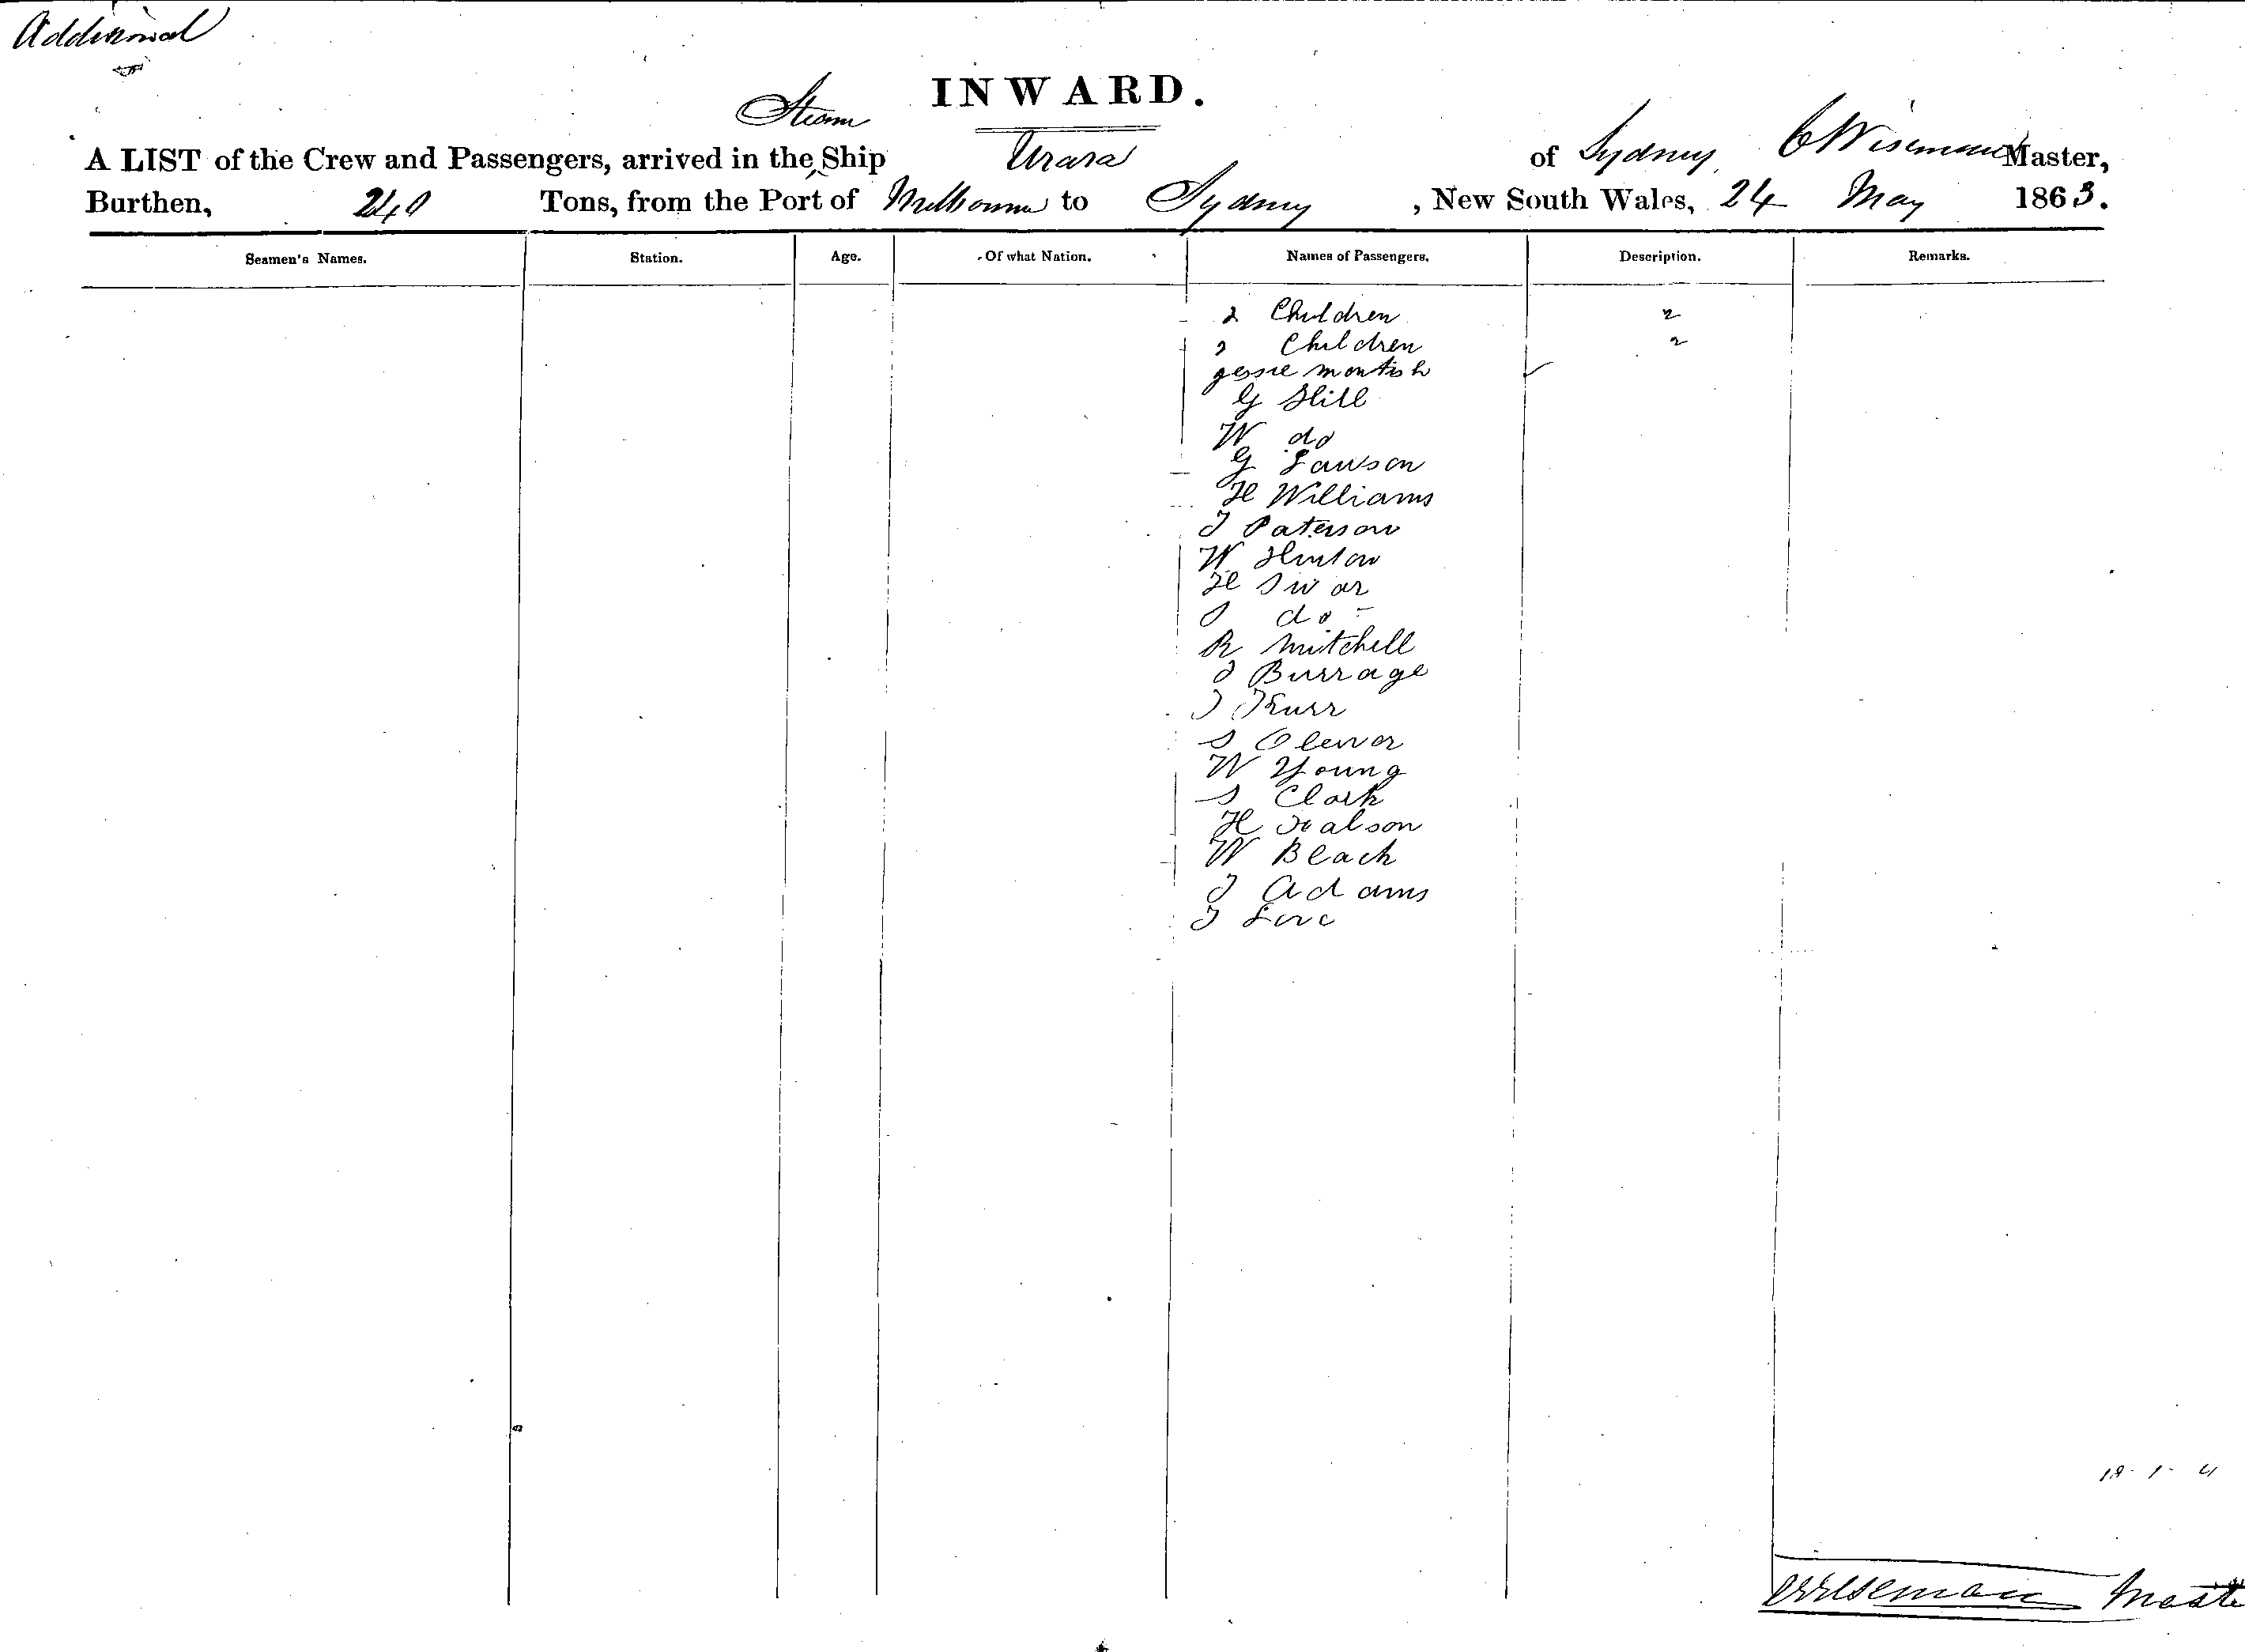 Additional
INWARD.
Steam
A LIST of the Crew and Passengers, arrived in the Ship Urara of Sydney, C Wiseman Master,
Burthen, 240 Tons, from the Port of Melbourne to Sydney, New South Wales, 24 May 1863.
Seamen's Names. Station. Age. Of what Nation. Names of Passengers. Description. Remarks.
2 Children 2
2 Children 2
gessie montish
G Hill
W do
G Lawson
H Williams
J Paterson
W Hinton
H
S do
R Mitchell
J Burrage
J
S Olever
W Young
S Clark
H
W Black
J Adams
J Love
18-1-4
CWiseman Maste